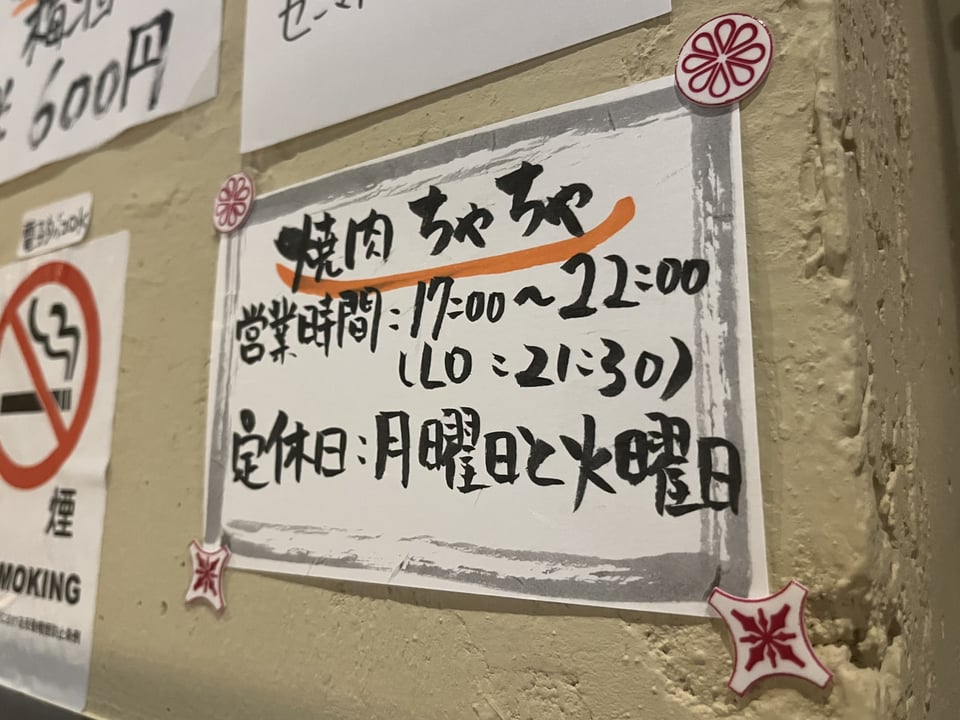 梅酒
600円
電子タバコOK
煙
MOKING
焼肉 ちゃちゃ
営業時間:17:00~22:00
(LO:21:30)
定休日:月曜日と火曜日